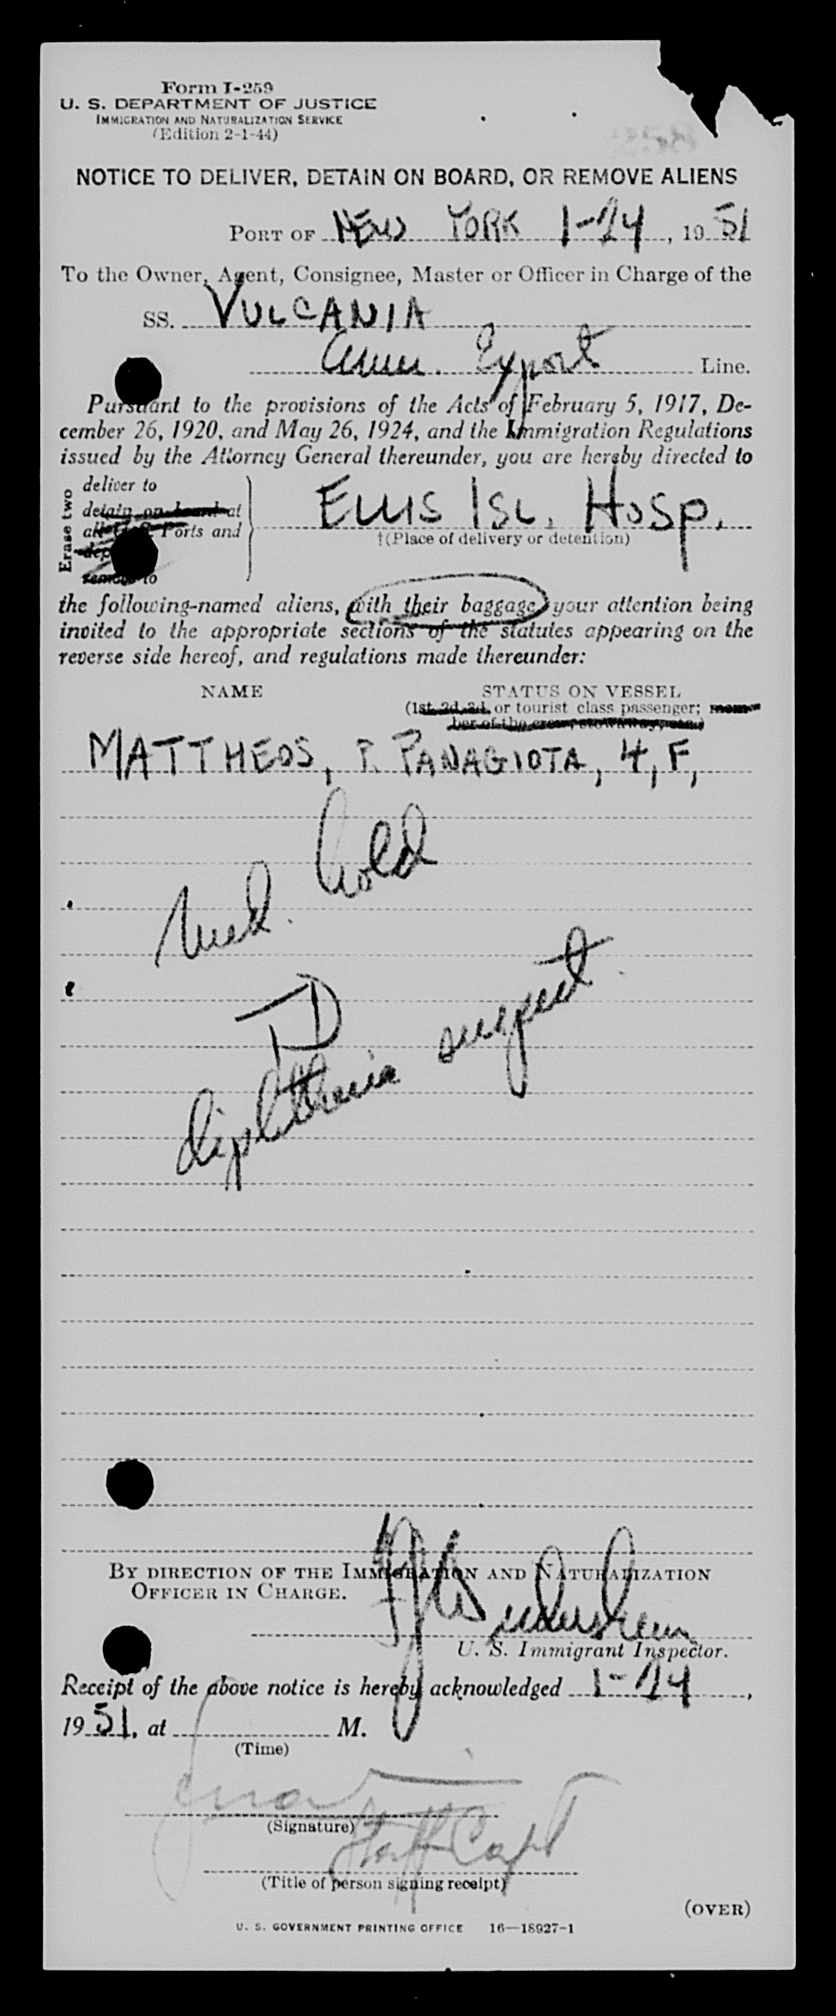 Form I-259
U. S. DEPARTMENT OF JUSTICE
IMMIGRATION AND NATURALIZATION SERVICE
(Edition 2-1-44)
NOTICE TO DELIVER, DETAIN ON BOARD, OR REMOVE ALIENS
PORT OF NEW YORK 1-24, 1951
To the Owner, Agent, Consignee, Master or Officer in Charge of the
SS. VULCANIA
Amer. Export Line.
Pursuant to the provisions of the Acts of February 5, 1917, De-
cember 26, 1920, and May 26, 1924, and the Immigration Regulations
issued by the Attorney General thereunder, you are hereby directed to
Erase two
deliver to
detain on board at
all Ports and
remove to
ELLIS ISL. HOSP.
†(Place of delivery or detention)
the following-named aliens, with their baggage, your attention being
invited to the appropriate sections of the statutes appearing on the
reverse side hereof, and regulations made thereunder:
NAME STATUS ON VESSEL
(1st, 2d, 3d, or tourist class passenger; mem-
ber of the crew, stowaway, etc.)
MATTHEOS, P. PANAGIOTA, 4, F,
Med. hold
diphtheria suspect.
BY DIRECTION OF THE IMMIGRATION AND NATURALIZATION
OFFICER IN CHARGE.
U. S. Immigrant Inspector.
Receipt of the above notice is hereby acknowledged 1-24,
1951, at M.
(Time)
(Signature)
Staff Capt
(Title of person signing receipt)
(OVER)
U. S. GOVERNMENT PRINTING OFFICE 16—18927-1